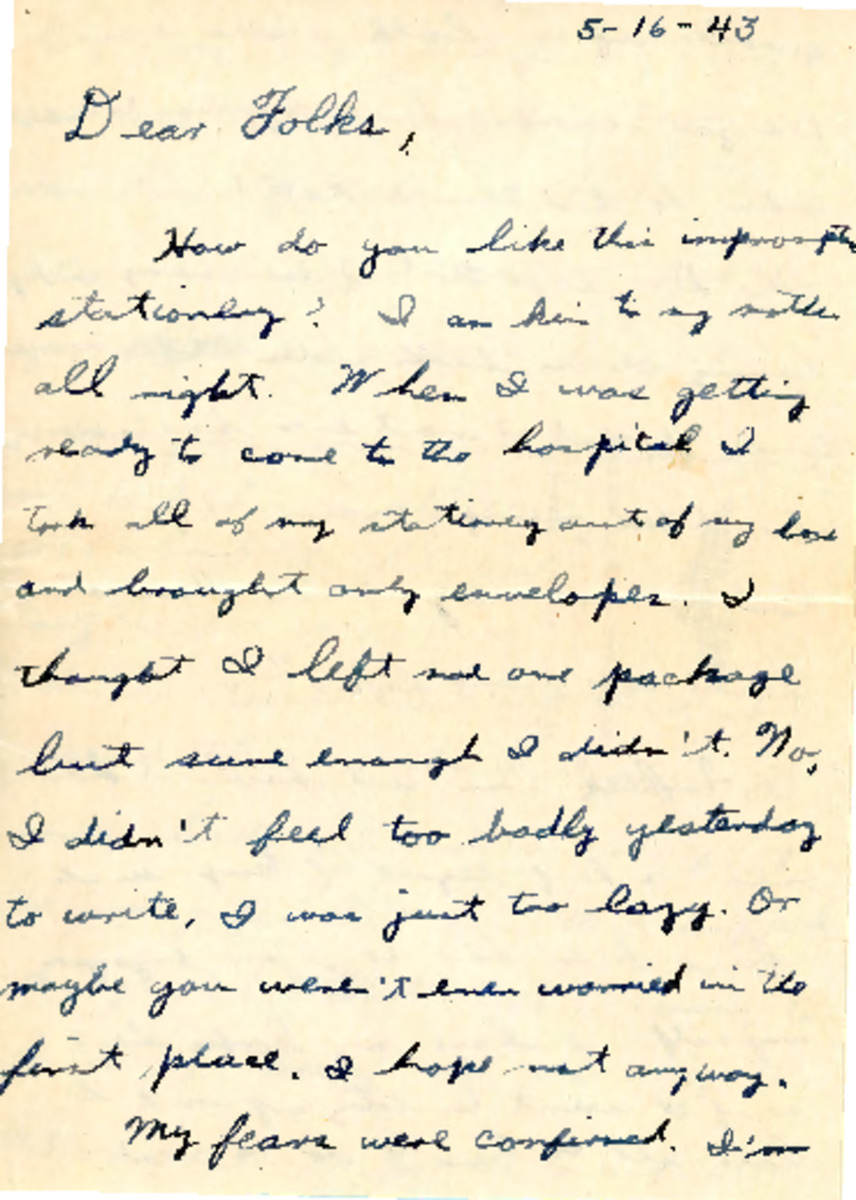 5-16-43
Dear Folks,
How do you like this impromptu
stationery? I am kin to my mother
all right. When I was getting
ready to come to the hospital I
took all of my stationery out of my box
and brought only envelopes. I
thought I left one package
but sure enough I didn't. No,
I didn't feel too badly yesterday
to write, I was just too lazy. Or
maybe you weren't even worried in the
first place. I hope not anyway.
My fears were confirmed. I'm